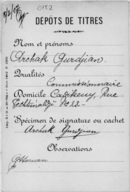 DÉPÔTS DE TITRES
Nom et prénoms
Archak Gurdjian.
Qualités
Commissionnaire
Domicile Cadikeuy, Rue
1022.
Spécimen de signature ou cachet
Archak Gurdjian
Observations
Ottoman